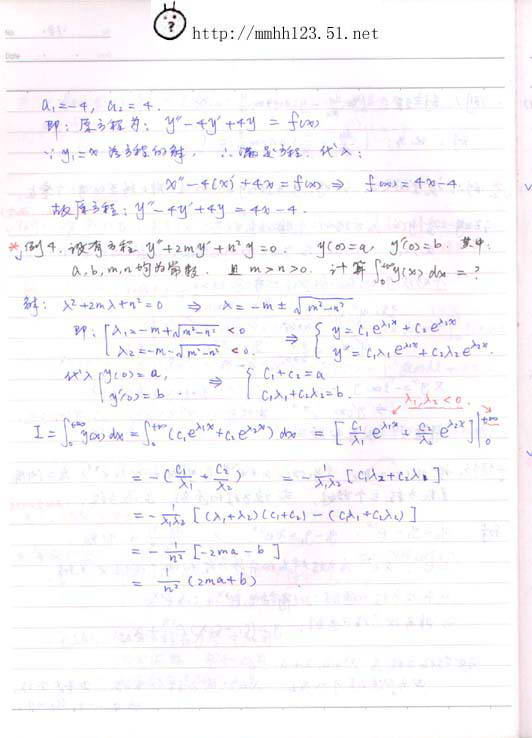 No.
Date
http://mmhh123.51.net
a₁=-4, a₂=4.
即: 原方程为: y''-4y'+4y = f(x)
∵ y₁=x 为方程的解. ∴满足方程. 代入:
x''-4(x)'+4x=f(x) ⇒ f(x)=4x-4.
故原方程: y''-4y'+4y=4x-4.
*例4. 设有方程 y''+2my'+n²y=0. y(0)=a, y'(0)=b. 其中:
a,b,m,n均为常数. 且 m>n>0. 计算∫₀^{+∞} y(x) dx = ?
解: λ²+2mλ+n²=0 ⇒ λ=-m±√(m²-n²)
即: { λ₁=-m+√(m²-n²) <0 ⇒ { y=c₁e^{λ₁x}+c₂e^{λ₂x}
λ₂=-m-√(m²-n²) <0. y'=c₁λ₁e^{λ₁x}+c₂λ₂e^{λ₂x}.
代入 { y(0)=a, ⇒ { c₁+c₂=a
y'(0)=b. c₁λ₁+c₂λ₂=b.
λ₁,λ₂<0
I=∫₀^{+∞} y(x) dx=∫₀^{+∞} (c₁e^{λ₁x}+c₂e^{λ₂x}) dx = [c₁/λ₁ e^{λ₁x}+c₂/λ₂ e^{λ₂x}]|₀^{+∞}
= -(c₁/λ₁+c₂/λ₂) = -1/(λ₁λ₂) [c₁λ₂+c₂λ₁]
= -1/(λ₁λ₂) [(λ₁+λ₂)(c₁+c₂)-(c₁λ₁+c₂λ₂)]
= -1/n² [-2ma-b]
= 1/n² (2ma+b)